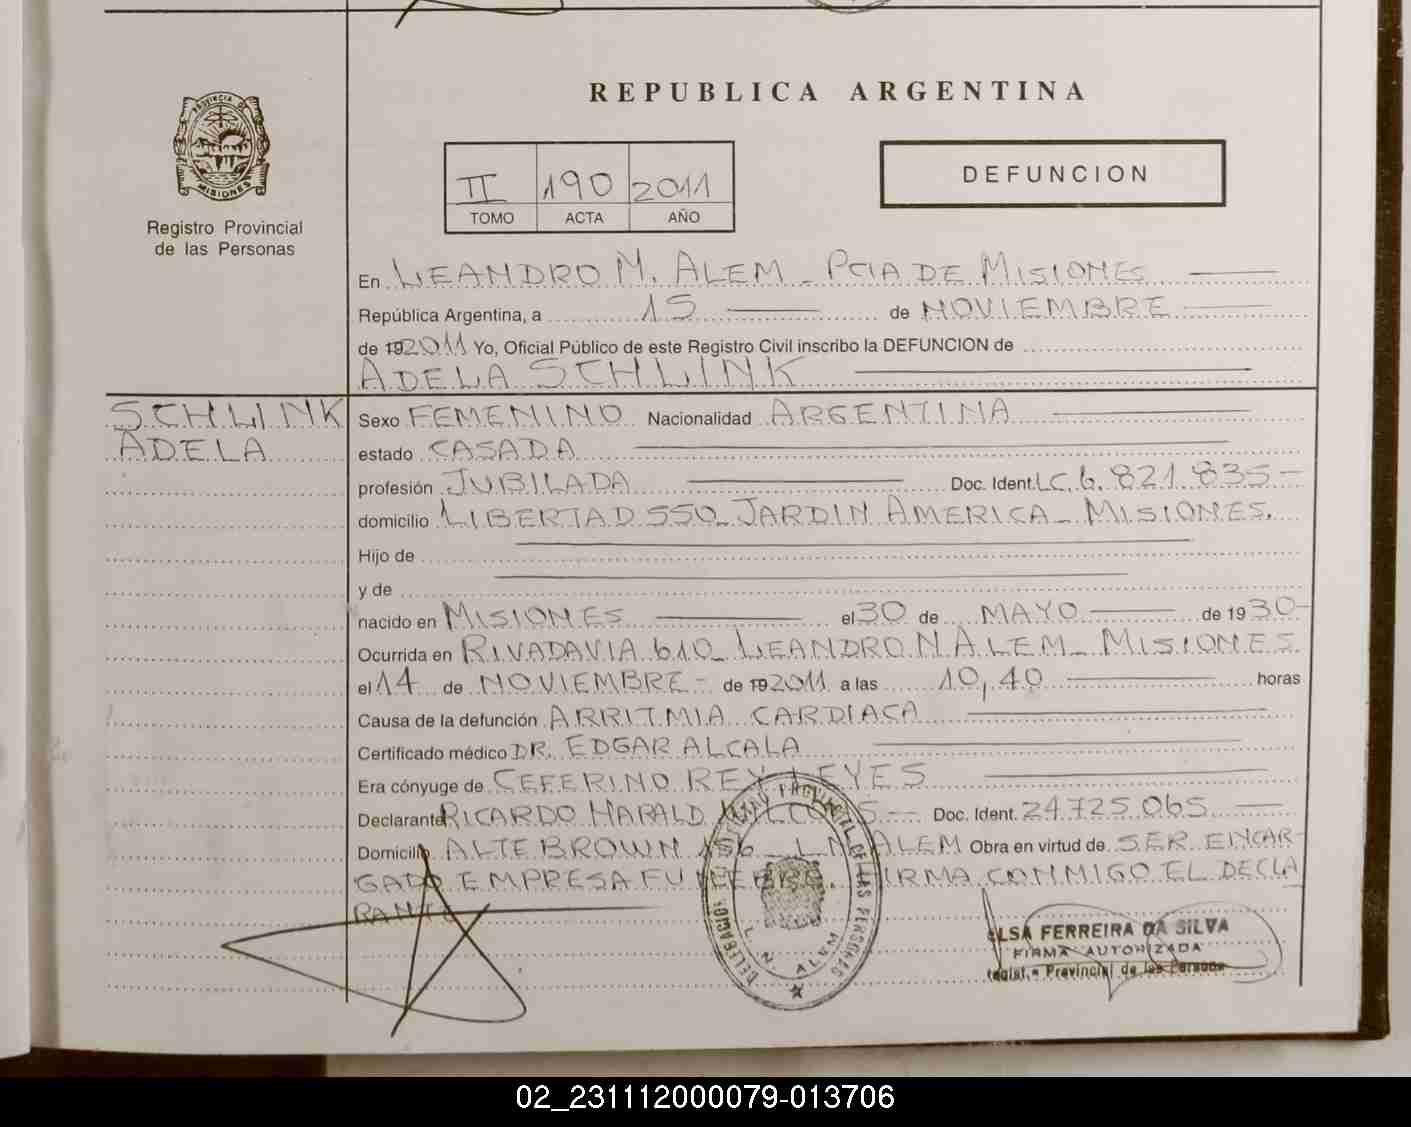 REPUBLICA ARGENTINA
PROVINCIA DE
MISIONES
Registro Provincial
de las Personas
II 190 2011
TOMO ACTA AÑO
DEFUNCION
En LEANDRO N. ALEM - PCIA DE MISIONES
República Argentina, a 15 de NOVIEMBRE
de 19 2011 Yo, Oficial Público de este Registro Civil inscribo la DEFUNCION de
ADELA SCHLINK
SCHLINK
ADELA
Sexo FEMENINO Nacionalidad ARGENTINA
estado CASADA
profesión JUBILADA Doc. Ident. LC. 6.821.835-
domicilio LIBERTAD 550- JARDIN AMERICA- MISIONES.
Hijo de
y de
nacido en MISIONES el 30 de MAYO de 19 30-
Ocurrida en RIVADAVIA 610- LEANDRO N ALEM- MISIONES.
el 14 de NOVIEMBRE- de 19 2011 a las 10,40 horas
Causa de la defunción ARRITMIA CARDIACA
Certificado médico DR. EDGAR ALCALA
Era cónyuge de CEFERINO REY LEYES
Declarante RICARDO HARALD Doc. Ident. 24.725.065
Domicilio ALTE BROWN 156 - L N ALEM Obra en virtud de SER ENCAR-
GADO EMPRESA FUNEBRE. FIRMA CONMIGO EL DECLA
RANTE
DELEGACION
PROVINCIAL DE LAS PERSONAS
L. N. ALEM
ELSA FERREIRA DA SILVA
FIRMA AUTORIZADA
Regist. Provincial de las Personas
02_231112000079-013706